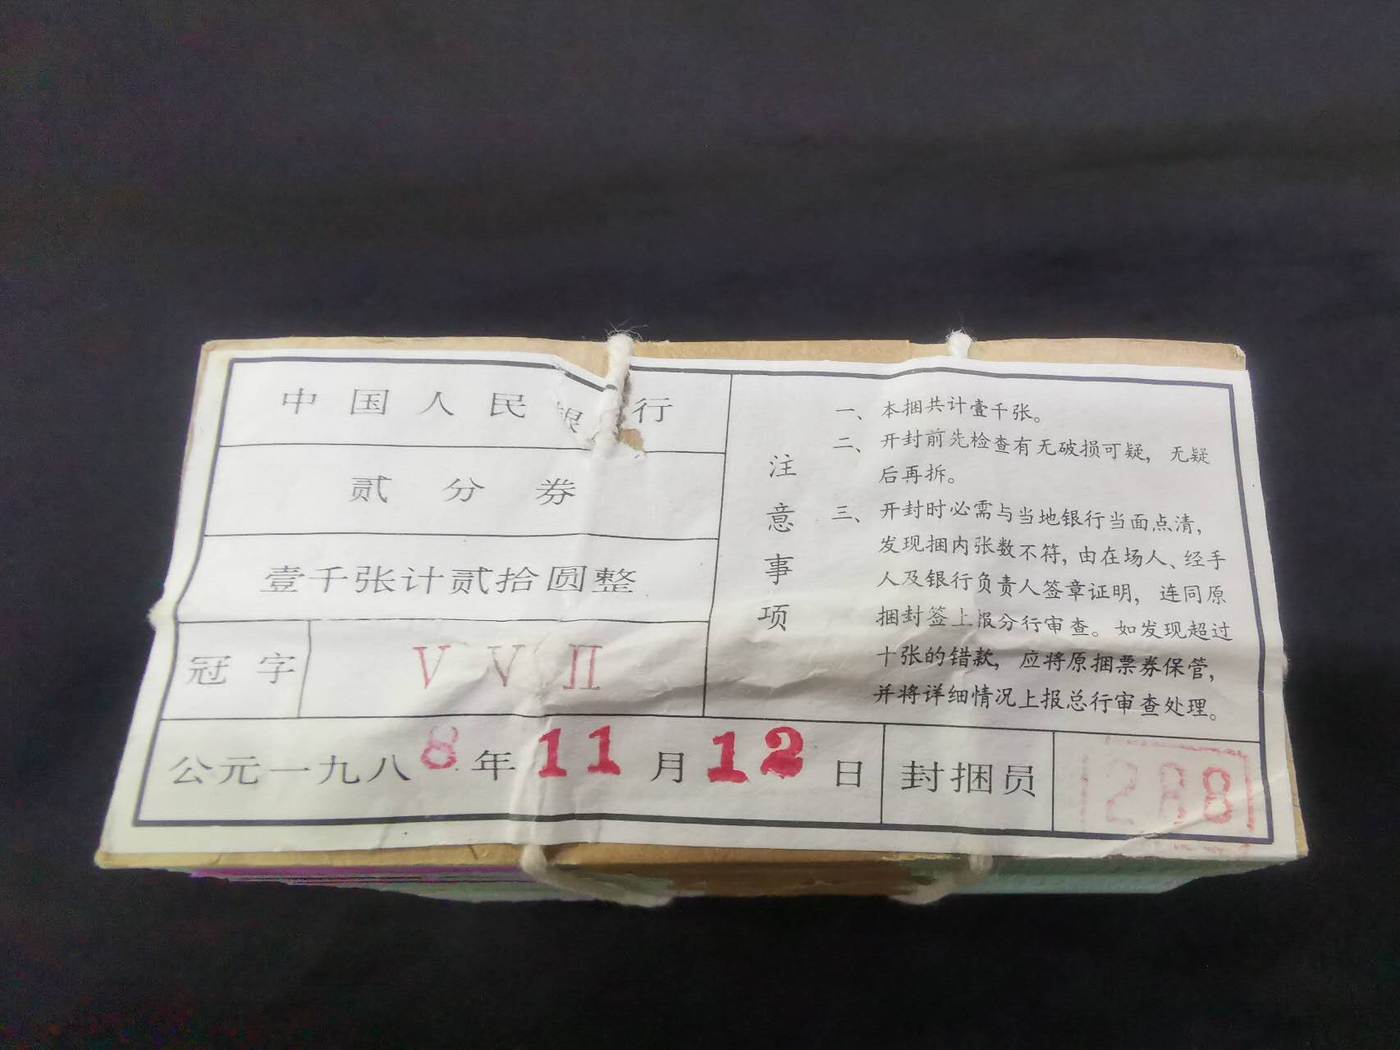 中国人民银行
贰分券
壹千张计贰拾圆整
冠字 V V II
公元一九八8年11月12日
封捆员 288
注意事项
一、本捆共计壹千张。
二、开封前先检查有无破损可疑，无疑
后再拆。
三、开封时必需与当地银行当面点清，
发现捆内张数不符，由在场人、经手
人及银行负责人签章证明，连同原
捆封签上报分行审查。如发现超过
十张的错款，应将原捆票券保管，
并将详细情况上报总行审查处理。